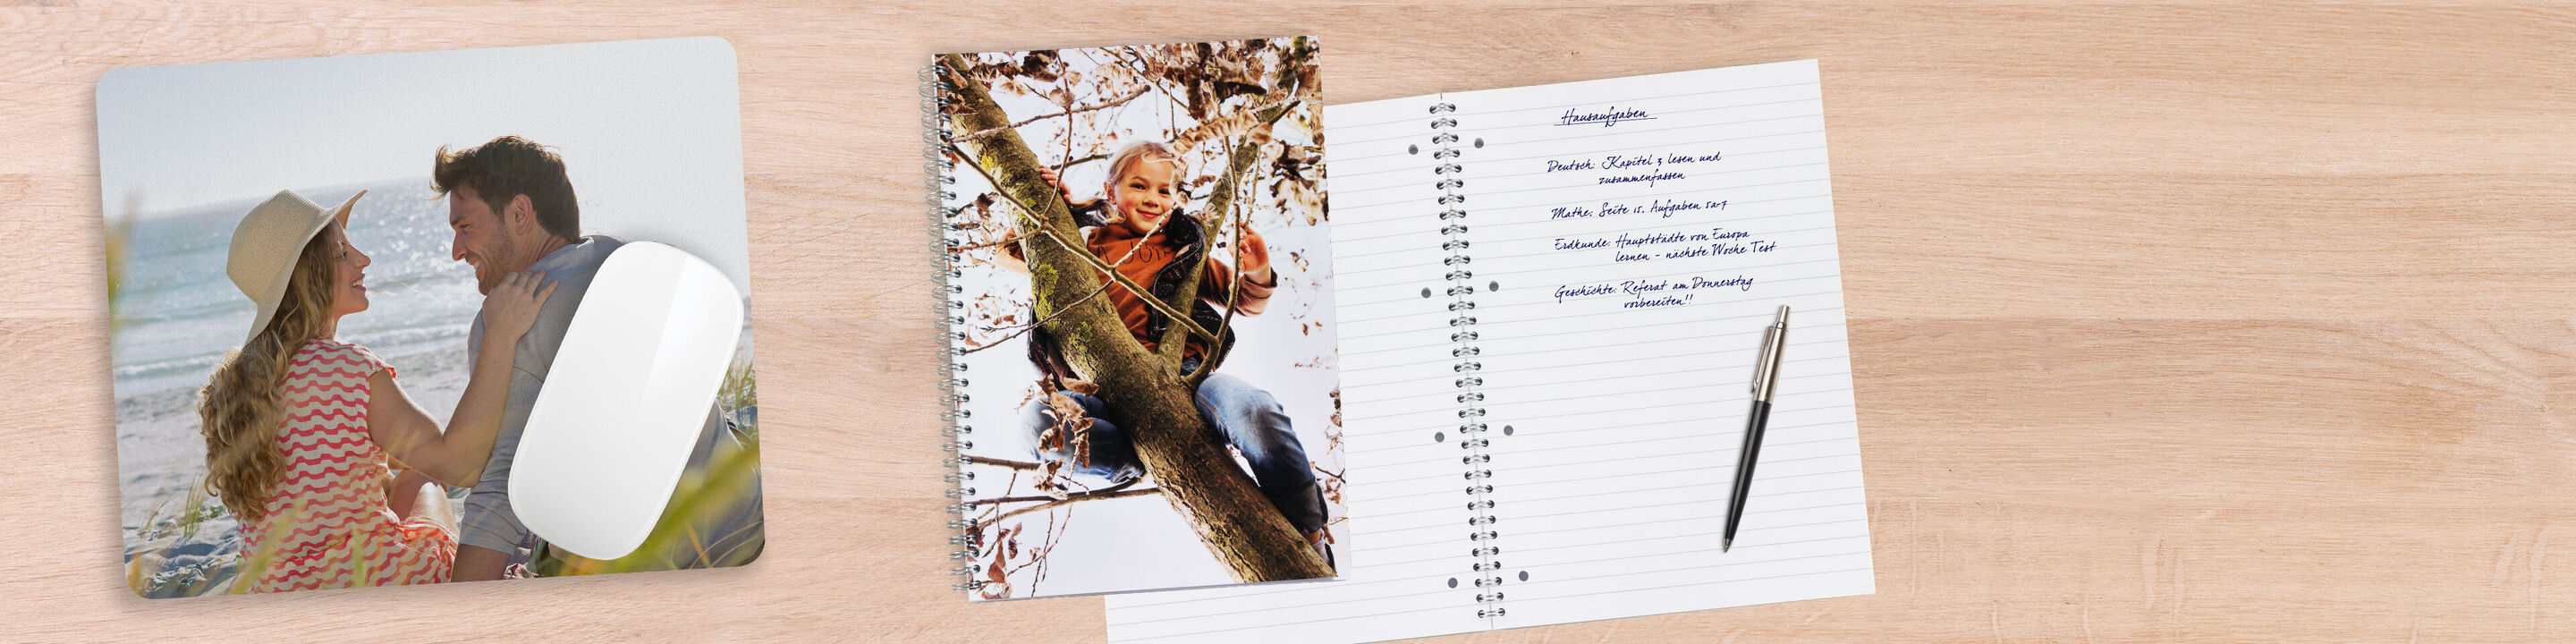 Hausaufgaben
Deutsch: Kapitel 3 lesen und
zusammenfassen
Mathe: Seite 15, Aufgaben 5a-7
Erdkunde: Hauptstädte von Europa
lernen - nächste Woche Test
Geschichte: Referat am Donnerstag
vorbereiten!!